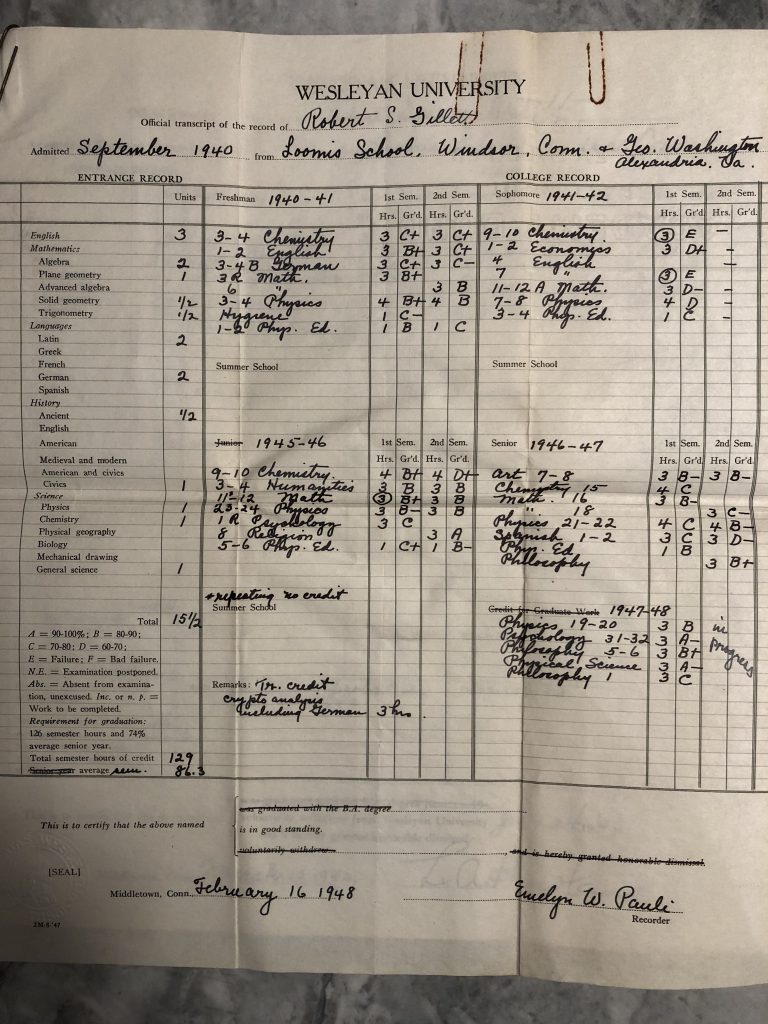 WESLEYAN UNIVERSITY
Official transcript of the record of Robert S. Gillett
Admitted September 1940 from Loomis School, Windsor, Conn. & Geo. Washington
Alexandria, Va.
ENTRANCE RECORD
COLLEGE RECORD
Units Freshman 1940-41 1st Sem. 2nd Sem. Sophomore 1941-42 1st Sem. 2nd Sem.
Hrs. Gr'd. Hrs. Gr'd. Hrs. Gr'd. Hrs. Gr'd.
English 3 3-4 Chemistry 3 C+ 3 C+ 9-10 Chemistry 3 E –
Mathematics 1-2 English 3 B+ 3 C+ 1-2 Economics 3 D+ –
Algebra 2 3-4 B German 3 C+ 3 C– 4 English –
Plane geometry 1 3 R Math. 3 B+ 7 " 3 E
Advanced algebra 6 " 3 B 11-12 A Math. 3 D– –
Solid geometry 1/2 3-4 Physics 4 B+ 4 B 7-8 Physics 4 D –
Trigonometry 1/2 Hygiene 1 C– 3-4 Phys. Ed. 1 C –
Languages 1-2 Phys. Ed. 1 B 1 C
Latin 2
Greek
French Summer School Summer School
German 2
Spanish
History
Ancient 1/2
English
American Junior 1945-46 1st Sem. 2nd Sem. Senior 1946-47 1st Sem. 2nd Sem.
Medieval and modern Hrs. Gr'd. Hrs. Gr'd. Hrs. Gr'd. Hrs. Gr'd.
American and civics 9-10 Chemistry 4 B+ 4 D+ Art 7-8 3 B– 3 B–
Civics 1 3-4 Humanities 3 B 3 B Chemistry 15 4 C
Science 11-12 Math 3 B+ 3 B Math. 16 3 B–
Physics 1 23-24 Physics 3 B– 3 B " 18 3 C–
Chemistry 1 1 R Psychology 3 C Physics 21-22 4 C 4 B–
Physical geography 8 Religion 3 A Spanish 1-2 3 C 3 D–
Biology 5-6 Phys. Ed. 1 C+ 1 B– Phys. Ed 1 B
Mechanical drawing Philosophy 3 B+
General science 1
repeating no credit
Summer School Credit for Graduate Work 1947-48
Total 15 1/2 Physics 19-20 3 B in progress
A = 90-100%; B = 80-90; Psychology 31-32 3 A–
C = 70-80; D = 60-70; Philosophy 5-6 3 B+
E = Failure; F = Bad failure. Physical Science 3 A–
N.E. = Examination postponed. Philosophy 1 3 C
Abs. = Absent from examina- Remarks: Tr. credit
tion, unexcused. Inc. or n. p. = crypto analysis
Work to be completed. including German 3 hrs.
Requirement for graduation:
126 semester hours and 74%
average senior year.
Total semester hours of credit 129
Senior year average sem. 86.3
was graduated with the B.A. degree
This is to certify that the above named is in good standing.
voluntarily withdrew , and is hereby granted honorable dismissal.
[SEAL]
Middletown, Conn., February 16 1948 Emelyn W. Pauli
Recorder
2M-8-'47